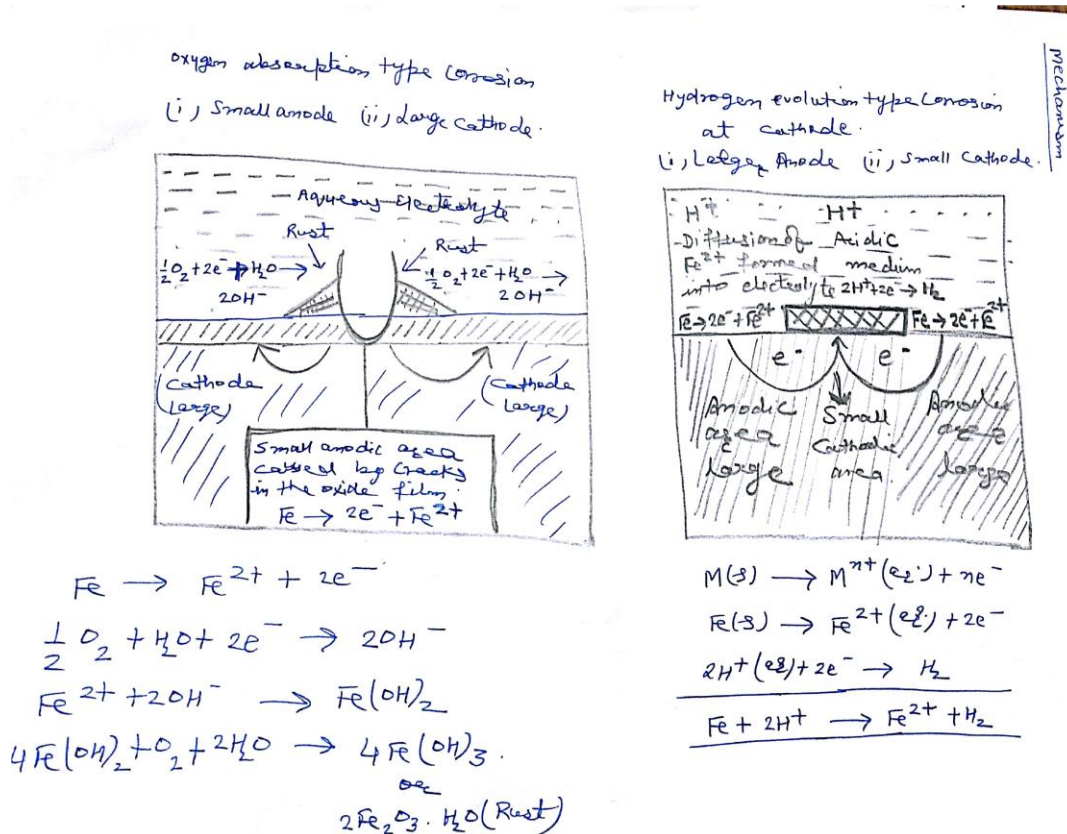 Mechanism
Oxygen absorption type Corrosion
(i) Small anode (ii) Large Cathode.
Aqueous Electrolyte
Rust
Rust
½O₂+2e⁻+H₂O →
2OH⁻
½O₂+2e⁻+H₂O →
2OH⁻
(Cathode
Large)
(Cathode
Large)
Small anodic area
caused by Cracks
in the oxide film.
Fe → 2e⁻ + Fe²⁺
Fe → Fe²⁺ + 2e⁻
½ O₂ + H₂O + 2e⁻ → 2OH⁻
Fe²⁺ + 2OH⁻ → Fe(OH)₂
4Fe(OH)₂+O₂+2H₂O → 4Fe(OH)₃.
or
2Fe₂O₃.H₂O (Rust)
Hydrogen evolution type Corrosion
at cathode.
(i) Larger Anode (ii) Small Cathode.
H⁺ H⁺
Diffusion of Acidic
Fe²⁺ formed medium
into electrolyte 2H⁺+2e⁻→H₂
Fe→2e⁻+Fe²⁺ Fe→2e⁻+Fe²⁺
e⁻ e⁻
Anodic
area
large
Small
Cathodic
area.
Anodic
area
large
M(s) → Mⁿ⁺(aq.) + ne⁻
Fe(s) → Fe²⁺(aq.) + 2e⁻
2H⁺(aq) + 2e⁻ → H₂
Fe + 2H⁺ → Fe²⁺ + H₂